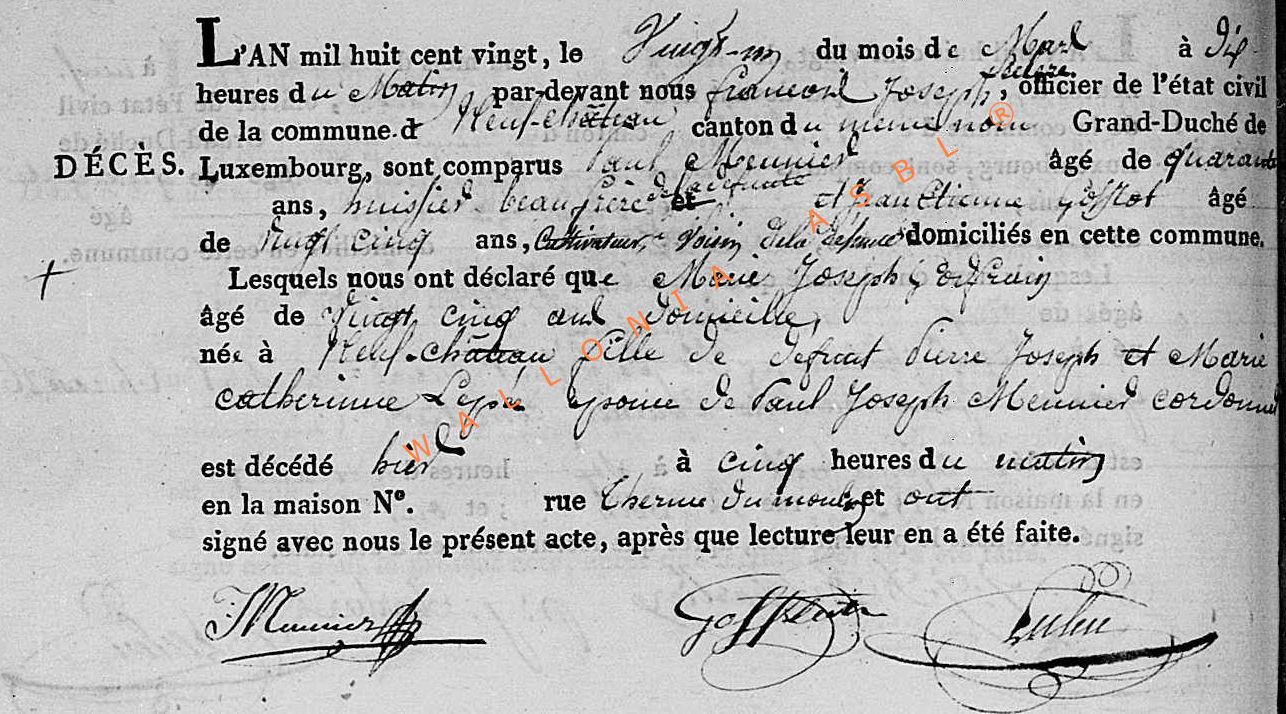 L'AN mil huit cent vingt, le Vingt-un du mois de Mars à Dix
heures du Matin par-devant nous françois Joseph, officier de l'état civil
de la commune d Neuf-château canton du meme nom Grand-Duché de
DÉCÈS. Luxembourg, sont comparus Paul Meunier âgé de quarante
ans, huissier beaufrère de la defunte et Jean Etienne âgé
de vingt cinq ans, Cultivateur, Voisin de la defunte domiciliés en cette commune.
Lesquels nous ont déclaré que Marie Joseph
âgé de vingt cinq ans domicilie,
née à Neuf-château fille de defunt Pierre Joseph et Marie
catherinne épouse de Paul Joseph Meunier cordonnier
est décédé hier à cinq heures du matin
en la maison N°. rue et ont
signé avec nous le présent acte, après que lecture leur en a été faite.
Meunier
WALLONIA ASBL ®